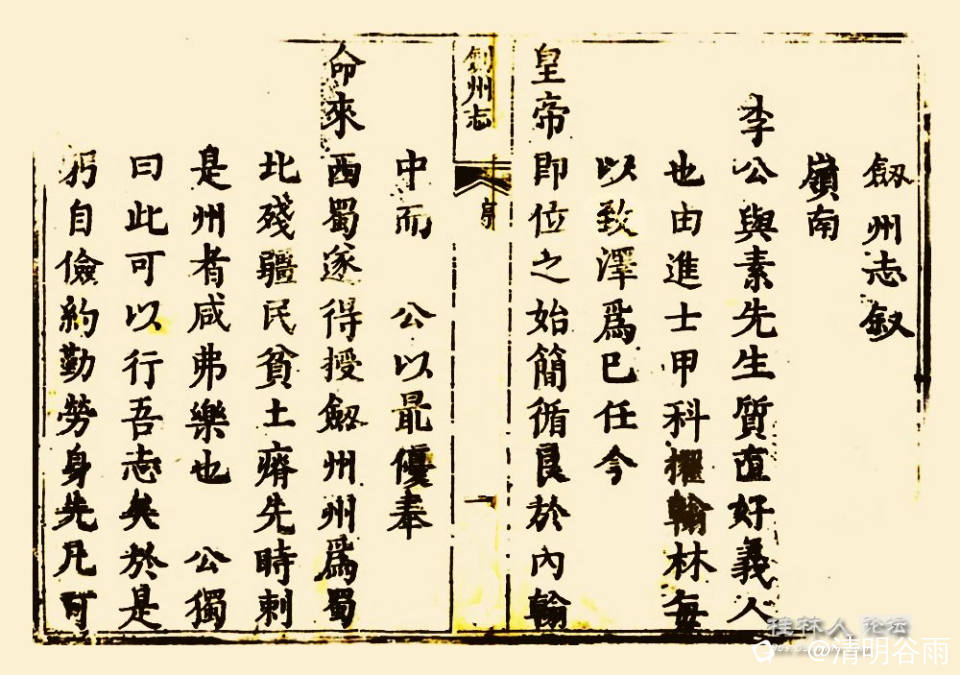 劔州志叙
嶺南
李公與素先生質直好義人
也由進士甲科擢翰林每
以致澤爲已任今
皇帝即位之始簡循良於內翰
劔州志
序
一
中而 公以最優奉
命來西蜀遂得授劔州州爲蜀
北殘疆民貧土瘠先時刺
是州者咸弗樂也 公獨
曰此可以行吾志矣於是
躬自儉約勤勞身先凡可
桂林人 论坛
@清明谷雨